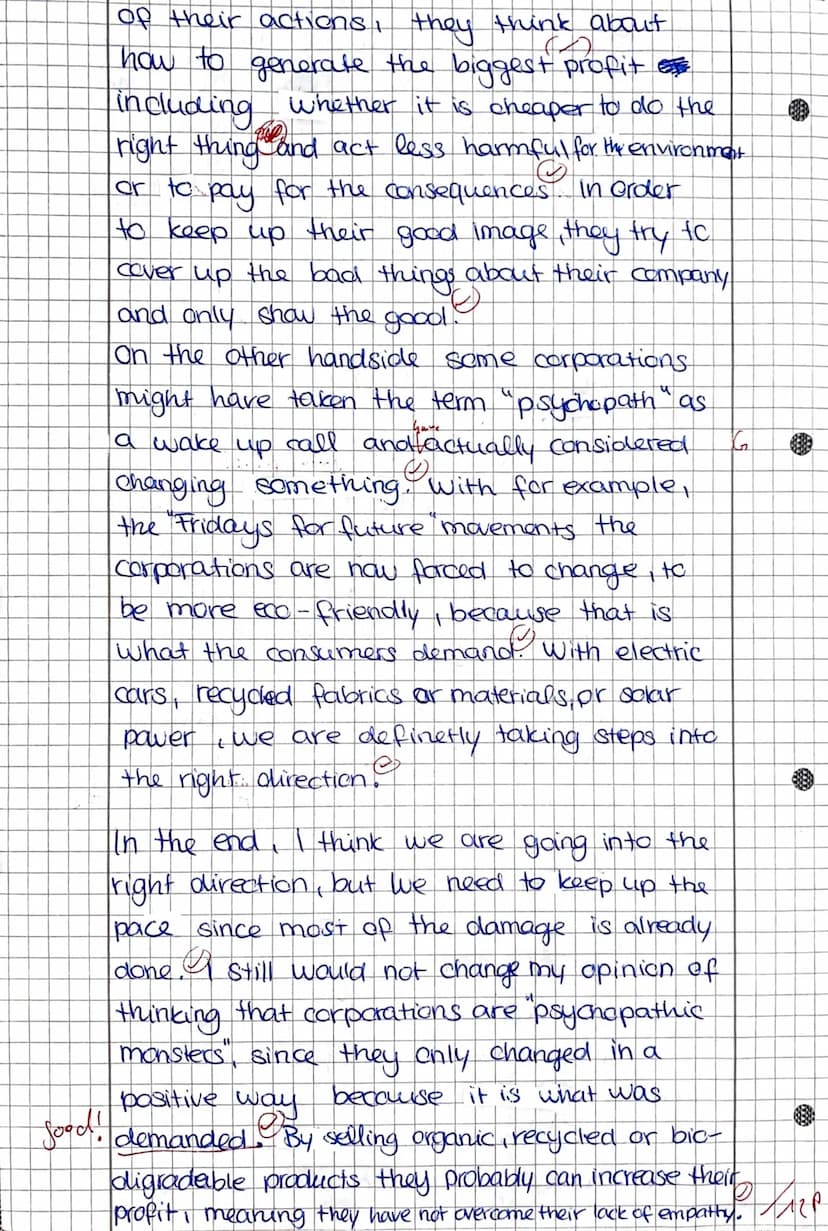 of their actions, they think about
how to generate the biggest profit
including whether it is cheaper to do the
right thing and act less harmful for the environment
or to pay for the consequences. In order
to keep up their good image, they try to
cover up the bad things about their company
and only show the good.
On the other handside some corporations
might have taken the term "psychopath" as
have
a wake up call and actually considered G
changing something. With for example,
the "Fridays for future" movements the
corporations are now forced to change, to
be more eco-friendly, because that is
what the consumers demand. With electric
cars, recycled fabrics or materials, or solar
power, we are definetly taking steps into
the right direction.
In the end, I think we are going into the
right direction, but we need to keep up the
pace since most of the damage is already
done. I still would not change my opinion of
thinking that corporations are "psychopathic
monsters", since they only changed in a
positive way because it is what was
good! demanded. By selling organic, recycled or bio-
digradable products they probably can increase their
profit, meaning they have not overcome their lack of empathy. /12P